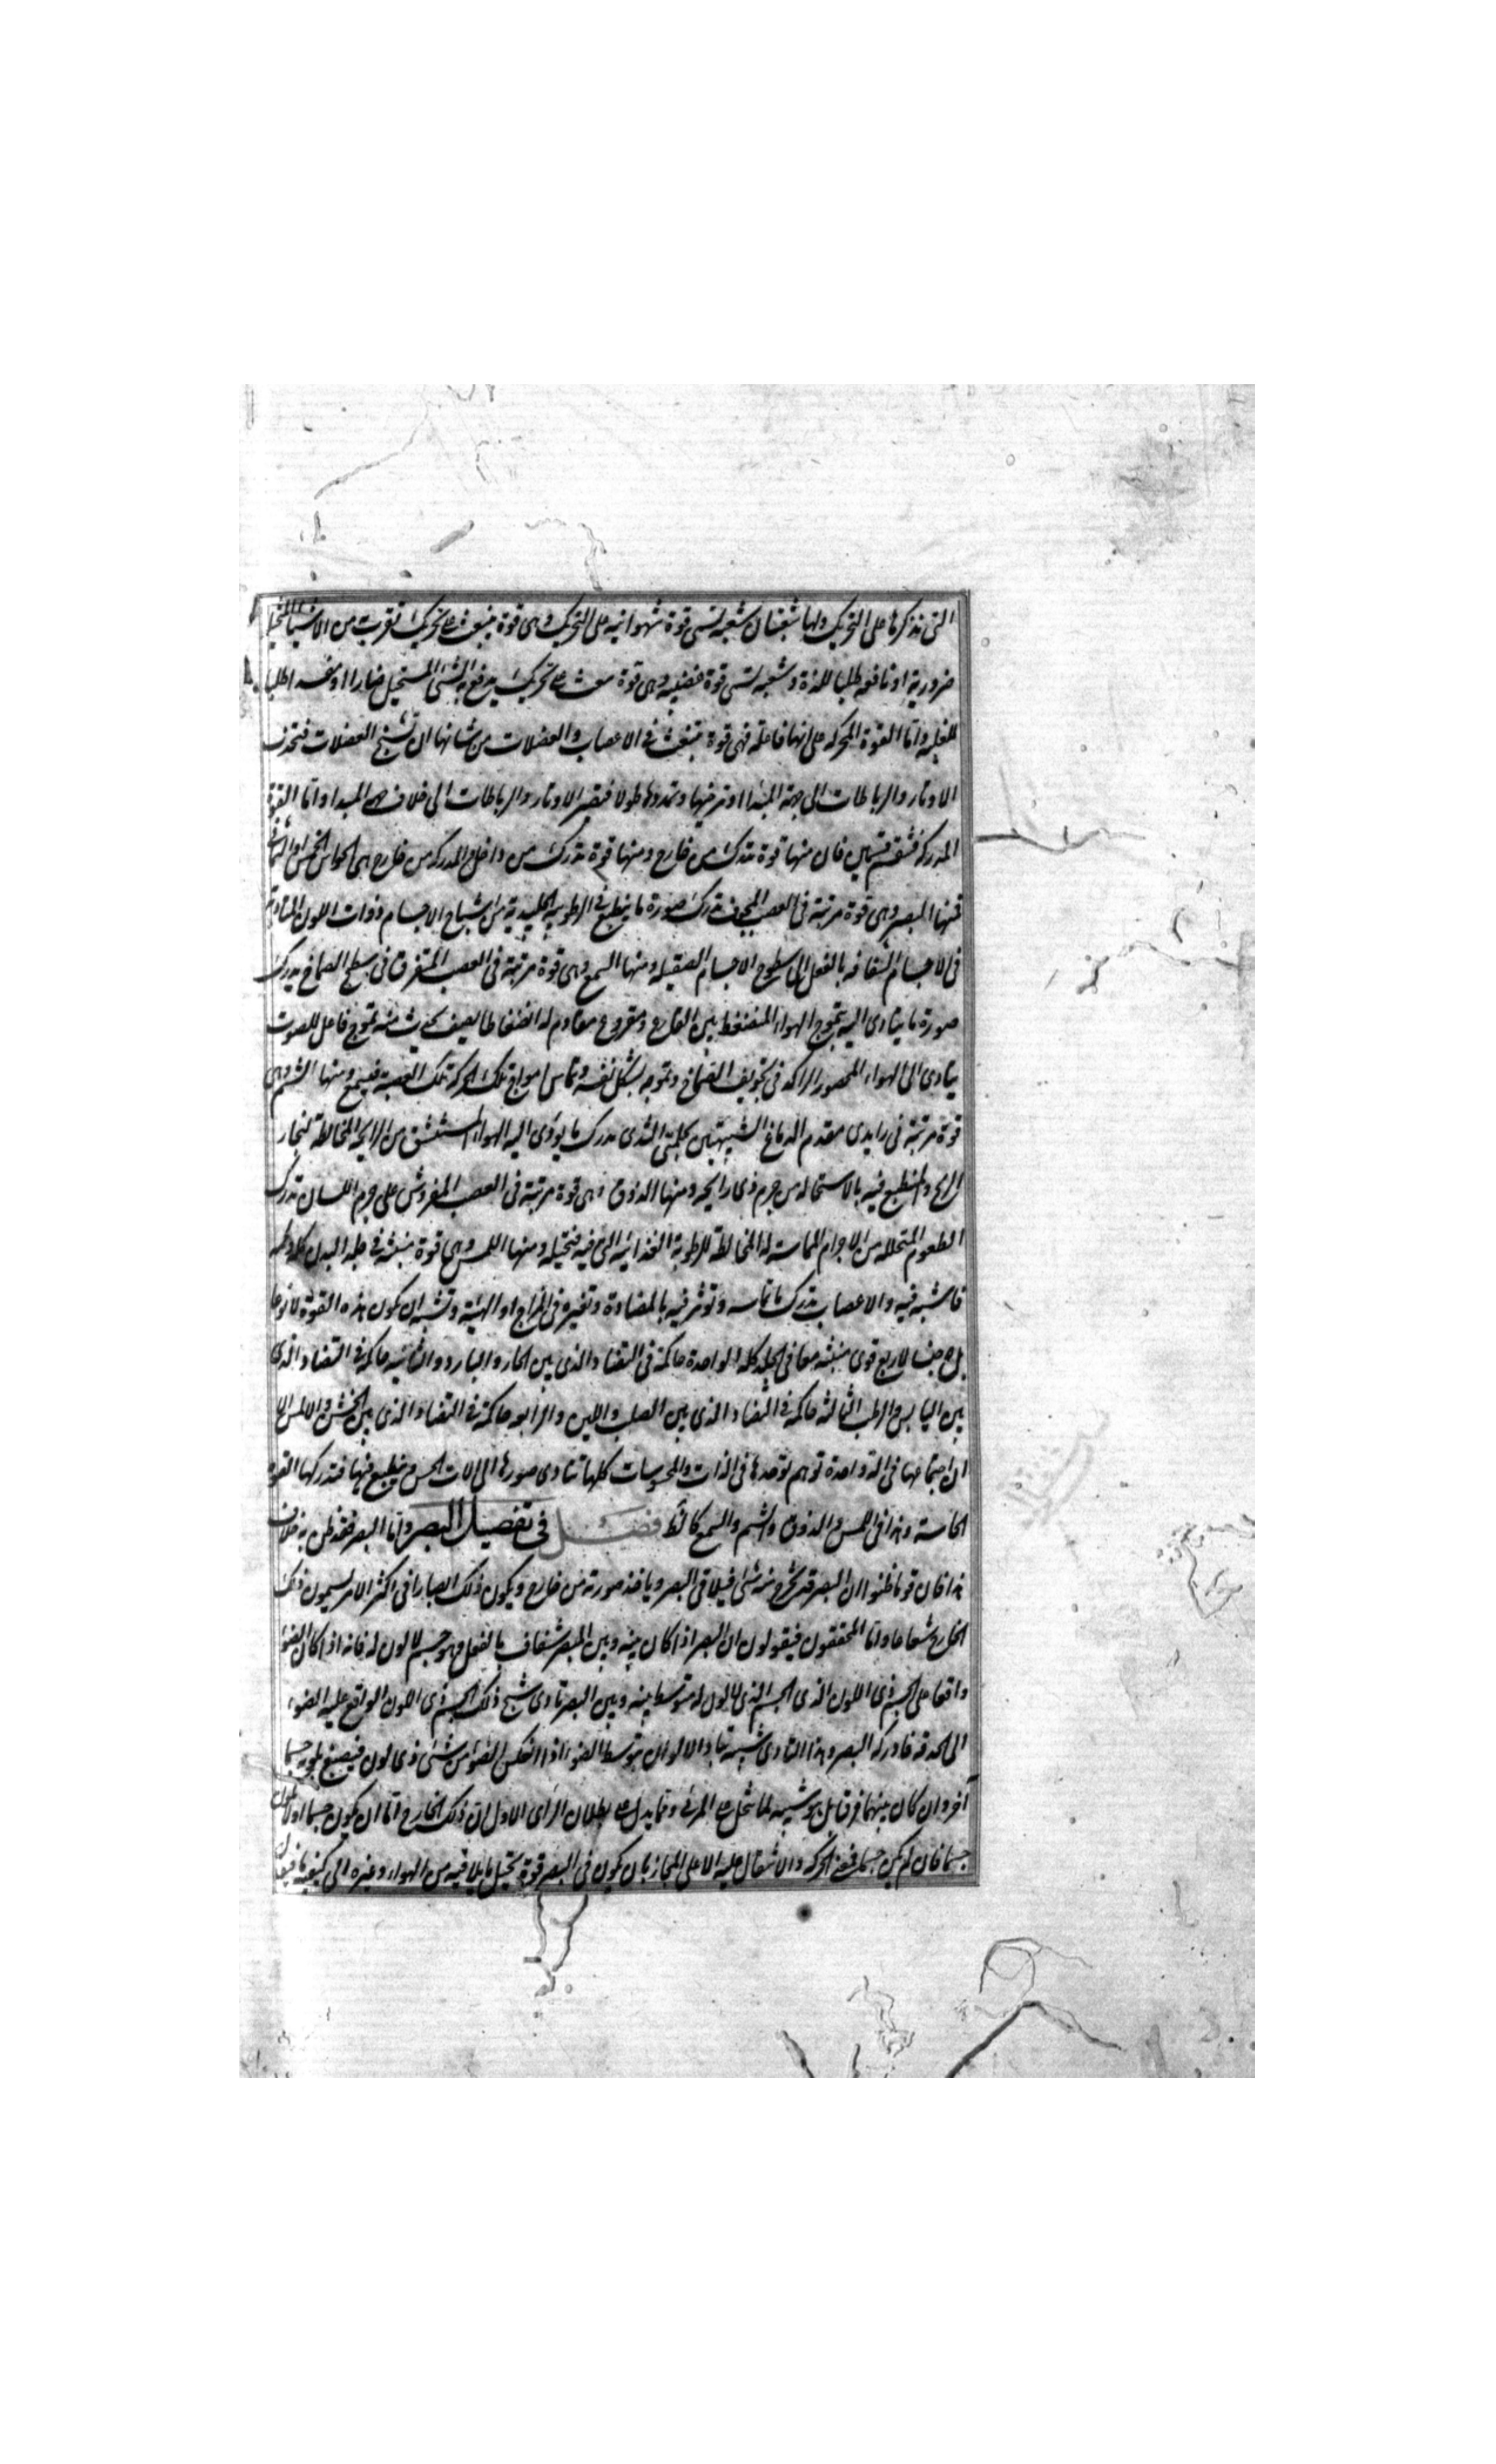 التى نذكرها على التحريك ولها شعبتان شعبة تسمى قوة شهوانية على التحريك وهى قوة ينبعث على تحريك تقرب من الاشياء المتخيلة
ضرورية او نافعه طلبا للذة وشعبه تسمى قوة غضبيه وهى قوة تبعث على تحريك يدفع به الشئ المتخيل ضارا او مفسدا طلبا
للغلبه واما القوة المحركه على انها فاعلة فهى قوة تنبعث فى الاعصاب والعضلات من شانها ان تشنج العضلات فتجذب
الاوتار والرباطات الى جهة المبدا او ترخيها وتمددها طولا فتصير الاوتار والرباطات الى خلاف جهة المبدا واما القوة
المدركه فتنقسم قسمين فان منها قوة تدرك من خارج ومنها قوة تدرك من داخل والمدركه من خارج هى الحواس الخمس او الثمان
فمنها البصر وهى قوة مرتبة فى العصب المجوف تدرك صورة ما ينطبع فى الرطوبه الجليديه من اشباح الاجسام ذوات اللون المتادية
فى الاجسام الشفافه بالفعل الى سطوح الاجسام الصقيله ومنها السمع وهى قوة مرتبة فى العصب المتفرق فى سطح الصماخ يدرك
صورة ما يتادى اليه بتموج الهواء المنضغط بين القارع ومقروع مقاوم له انضغاطا بعنف يحدث منه تموج فاعل للصوت
يتادى الى الهواء المحصور الراكد فى تجويف الصماخ وتموجه بشكل نفسه وتماس امواج تلك الحركه تلك العصبة فيسمع ومنها الشم وهى
قوة مرتبة فى زايدى مقدم الدماغ الشبيهتين بحلمتى الثدى تدرك ما يودى اليه الهواء المستنشق من الرايحه المخالطة لبخار
الريح والمنطبع فيه بالاستحاله من جرم ذى رايحه ومنها الذوق وهى قوة مرتبة فى العصب المفروش على جرم اللسان تدرك
الطعوم المتحلله من الاجرام المماسة له المخالطة للرطوبة العذابيه التى فيه فتحيله ومنها اللمس وهى قوة منبثه فى جلد البدن كله ولحمه
فاشيه فيه والاعصاب تدرك ما تماسه وتوثر فيه بالمضادة وتغيره فى المزاج او الهيئة وتشبه ان يكون هذه القوة لا نوعا
بل جنسا لاربع قوى منبثه معا فى الجلد كله الواحدة حاكمة فى التضاد الذى بين الحار والبارد والثانيه حاكمة فى التضاد الذى
بين اليابس والرطب الثالثه حاكمة فى التضاد الذى بين الصلب واللين والرابعه حاكمة فى التضاد الذى بين الخشن والاملس الا
ان اجتماعها فى الة واحدة توهم توحدها فى الذات والمحسوسات كلها تتادى صورها الى الات الحس وينطبع فيها فتدركها القوة
الحاسة وهذا فى اللمس والذوق والشم والسمع كالظ فصل فى تفصيل البصر واما البصر فقد ظن به خلاف
هذا فان قوما ظنوا ان البصر قد يخرج منه شئ فيلاقى البصر وياخذ صورته من خارج ويكون ذلك ابصارا فى اكثر الامر يسمون ذلك
الخارج شعاعا واما المحققون فيقولون ان البصر اذا كان بينه وبين المبصر شفاف بالفعل وهو جسم لا لون له فانه اذا كان الضوء
واقعا على الجسم ذى اللون الذى الجسم الذى لا لون له متوسط بينه وبين البصر تادى شبح ذلك الجسم ذى اللون الواقع عليه الضوء
الى الحدقه فادركه البصر وهذا التادى شبيه بتادى الالوان بتوسط الضوء اذا انعكس الضوء من شئ ذى لون فيصبغ بلونه جسما
آخر وان كان بينهما فرق بل هو شبيه لما يتخيل فى المرئى ومما يدل على بطلان الراى الاول ان ذلك الخارج اما ان يكون جسما او لا يكون
جسما فان لم يكن جسما فمعنى الحركه والانتقال عليه الا على المجاز بان يكون فى البصر قوة تحيل ما يلاقيه من الهواء وغيره الى كيفيه ما فيقال